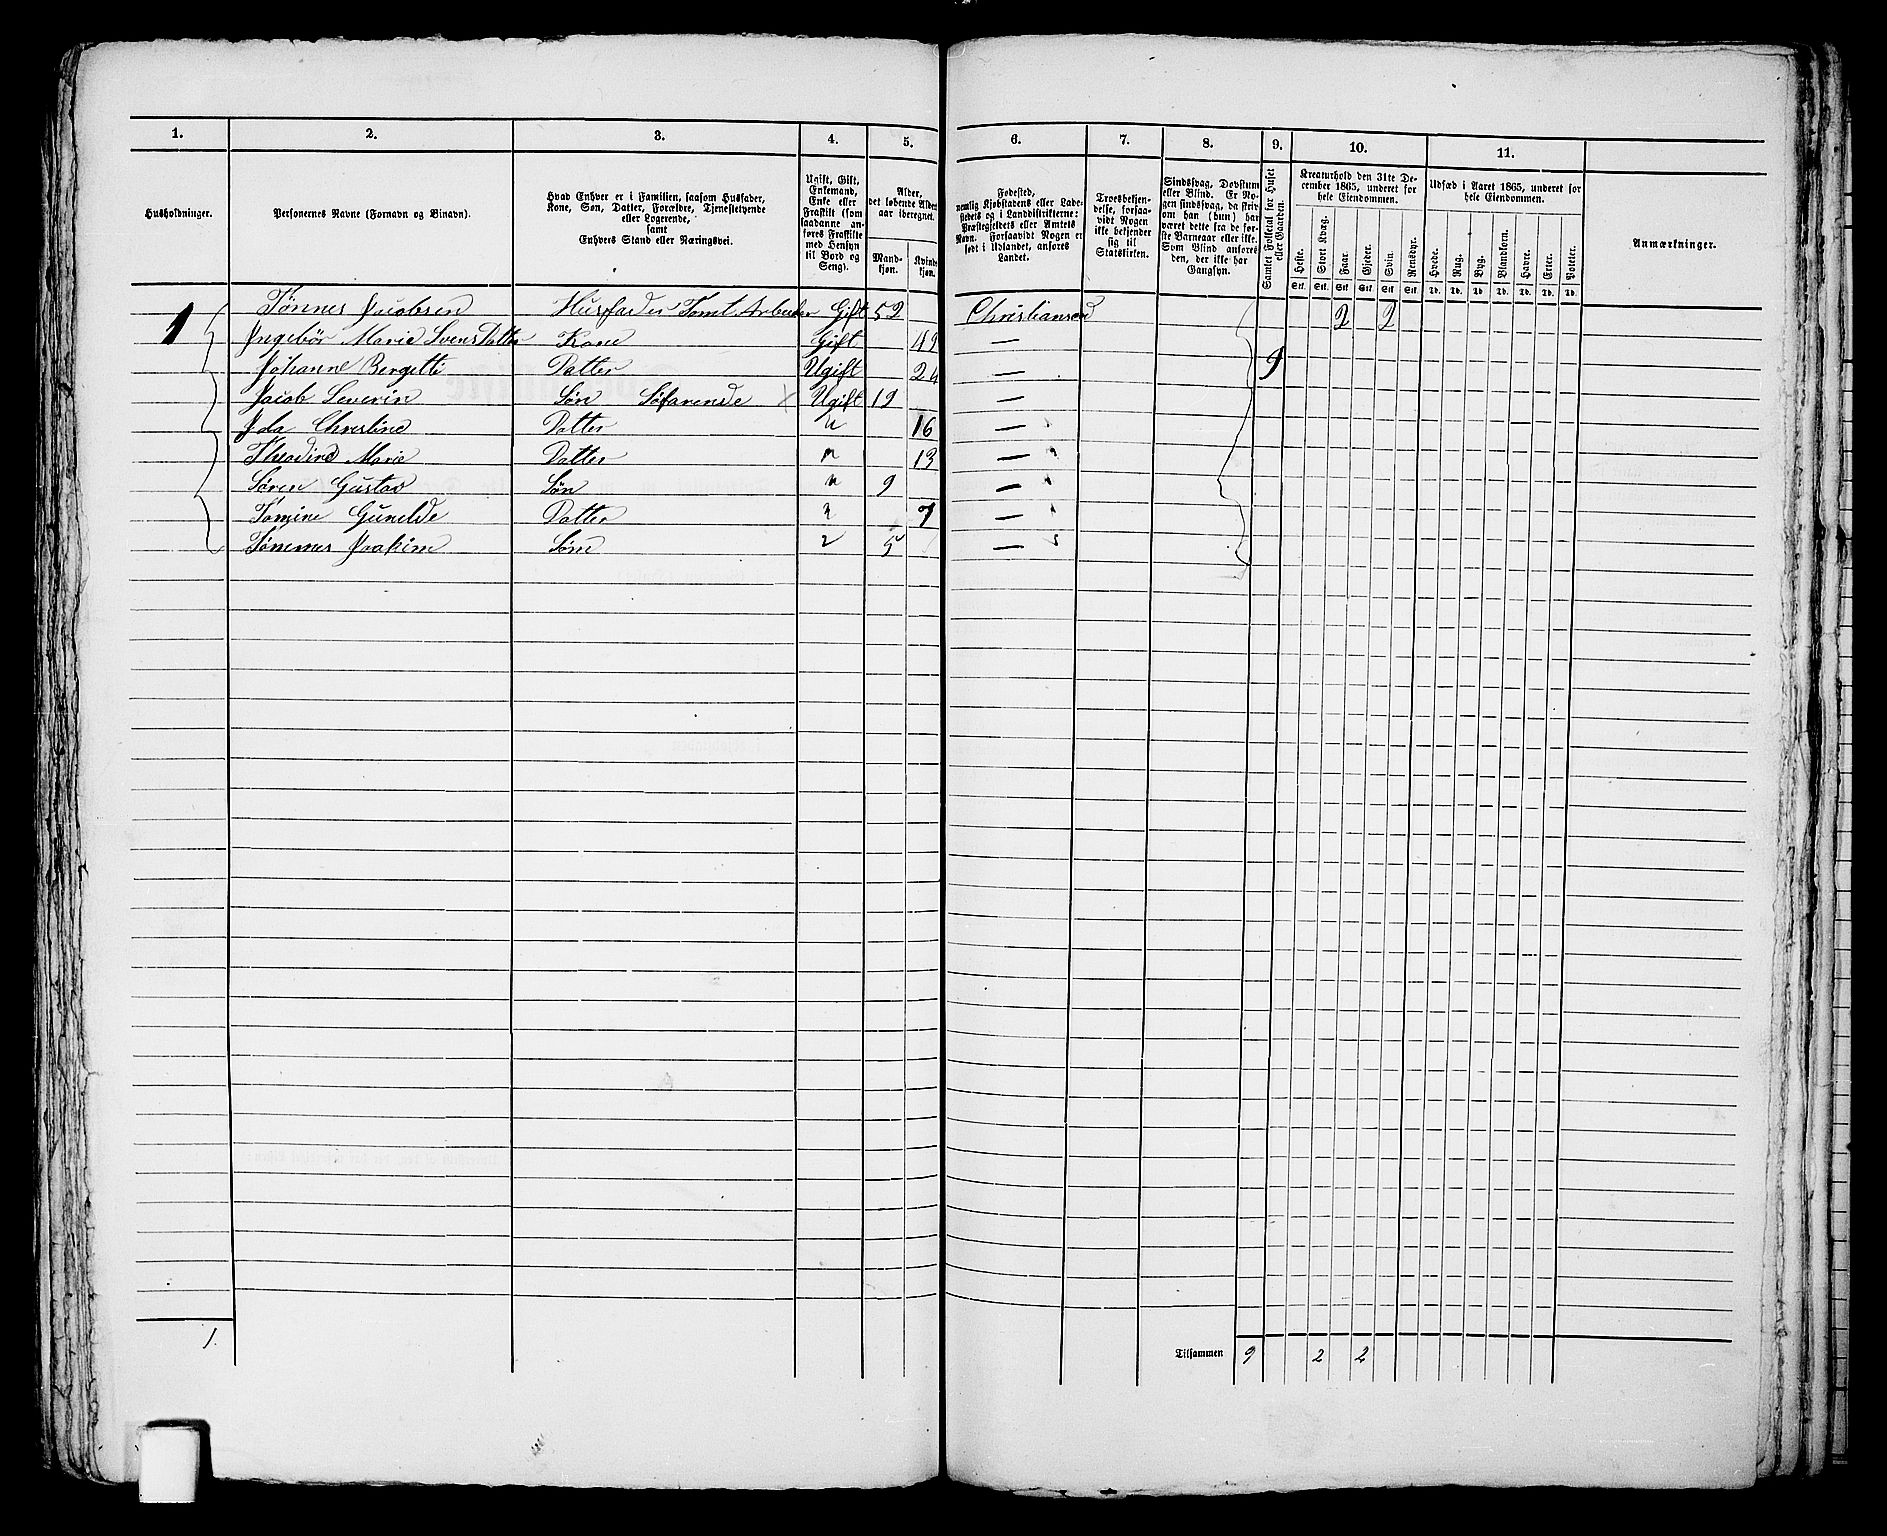 1. 2. 3. 4. 5. 6. 7. 8. 9. 10. 11.
Husholdninger.
Personernes Navne (Fornavn og Binavn).
Hvad Enhver er i Familien, saasom Husfader,
Kone, Søn, Datter, Forældre, Tjenestetyende
eller Logerende,
samt
Enhvers Stand eller Næringsvei.
Ugift, Gift,
Enkemand,
Enke eller
Fraskilt (som
saadanne an-
føres Fraskilte
med Hensyn
til Bord og
Seng).
Alder,
det løbende Alders-
aar iberegnet.
Mand-
kjøn.
Kvinde-
kjøn.
Fødested,
nemlig Kjøbstadens eller Lade-
stedets og i Landdistrikterne:
Præstegjeldets eller Amtets
Navn. Forsaavidt Nogen er
født i Udlandet, anføres
Landet.
Troesbekjen-
delse, forsaa-
vidt Nogen
ikke bekjender
sig til
Statskirken.
Sindssvag, Døvstum
eller Blind. Er No-
gen sindssvag, da skriv
om han (hun) har
været dette fra de før-
ste Barneaar eller ikke.
Som Blind anføres
den, der ikke har
Gangsyn.
Samlet Folketal for Huset
eller Gaarden.
Kreaturhold den 31te De-
cember 1865, underet for
hele Eiendommen.
Heste. Stort Kvæg. Faar. Gjeder. Svin. Rensdyr.
Stk. Stk. Stk. Stk. Stk. Stk.
Udsæd i Aaret 1865, underet for
hele Eiendommen.
Hvede. Rug. Byg. Blandkorn. Havre. Erter. Poteter.
Td. Td. Td. Td. Td. Td. Td.
Anmærkninger.
1 Tønnes Jacobsen Husfader Tomt. Arbeider Gift 52 Christiansand 2 2
Ingebør Marie Svens Datter Kone Gift 49 —
Johanne Bergette Datter Ugift 24 — 9
Jacob Severin Søn Søfarende Ugift 19 —
Ida Christine Datter " 16 — "
Theodine Marie Datter " 13 — "
Søren Gustav Søn " 9 — "
Tomine Gunelde Datter " 7 — "
Tønnes Joakim Søn " 5 — "
1.
Tilsammen 9 2 2